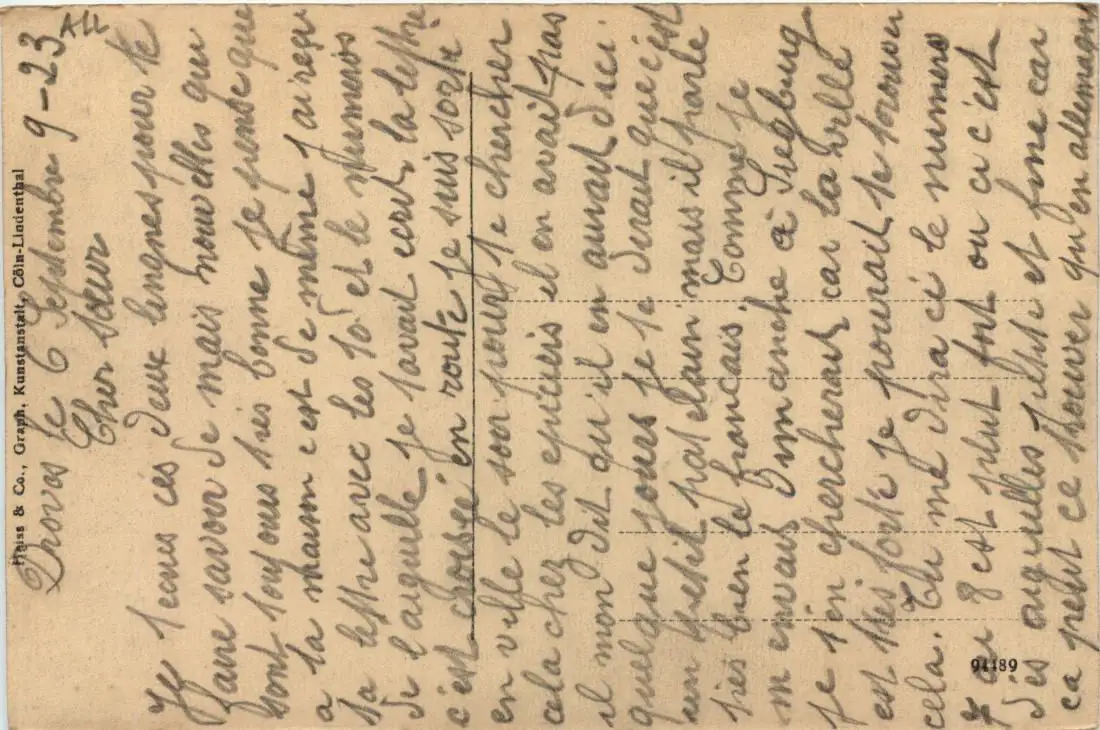 Heiss & Co., Graph. Kunstanstalt, Cöln-Lindenthal
Drovas le 6 Septembre 9-23
Cher sœur
Je tenes ces deux lingnes pour te
faire savoir de mais nouvelles qui
sont toujours très bonne je pense que
a la maim c'est de même j'ai reçu
ta lettre avec les to et le numerois
de l'aiguille je l'avait ecrit la lettre
c'est choisse en route je suis sortie
en ville le soir pour te chercher
cela chez les epiceis il en avait pas
il mon dit qu'il en aurait d'ici
quelque jours je te dirait que c'est
un petit patelain mais il parle
très bien le français. Comme je
m'en envais Dimanche à Siegburg
je t'en chercherait car la ville
est très forte je pourait te trouver
cela. Tu me dira ci le numero
7 ou 8 est plut fort ou ci c'est
des aiguilles petite et fine car
ca petit ce trouver qu'en allemagne
94489